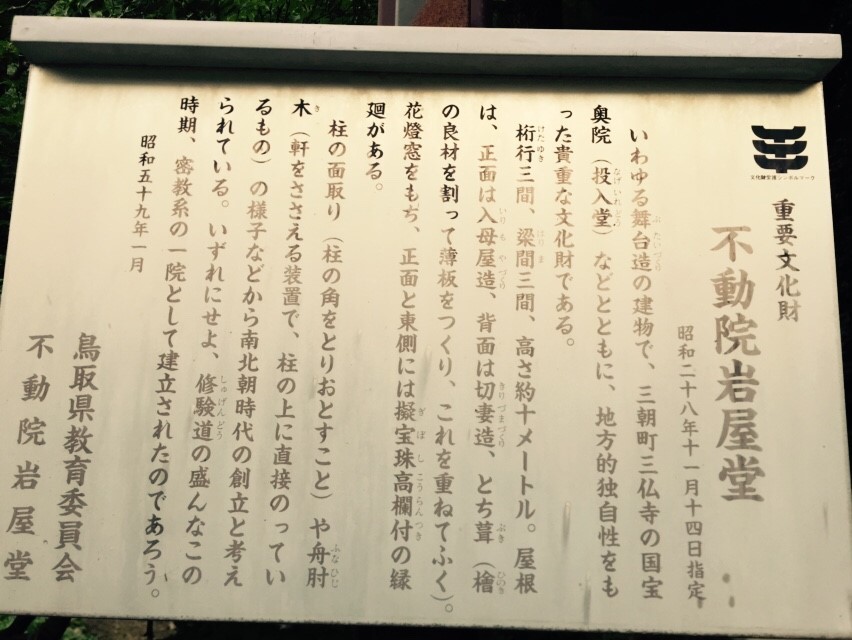 文化財愛護シンボルマーク
重要文化財
不動院岩屋堂
昭和二十八年十一月十四日指定
いわゆる舞台造の建物で、三朝町三仏寺の国宝
ぶたいづくり
奥院（投入堂）などとともに、地方的独自性をも
なげいれどう
った貴重な文化財である。
桁行三間、梁間三間、高さ約十メートル。屋根
けたゆき はりま
は、正面は入母屋造、背面は切妻造、とち葺（檜
いりもやづくり きりづまづくり ぶき ひのき
の良材を割って薄板をつくり、これを重ねてふく）。
花燈窓をもち、正面と東側には擬宝珠高欄付の縁
ぎぼしこうらんつき
廻がある。
柱の面取り（柱の角をとりおとすこと）や舟肘
ふなひじ
木（軒をささえる装置で、柱の上に直接のってい
き
るもの）の様子などから南北朝時代の創立と考え
られている。いずれにせよ、修験道の盛んなこの
しゅげんどう
時期、密教系の一院として建立されたのであろう。
昭和五十九年一月
鳥取県教育委員会
不動院岩屋堂